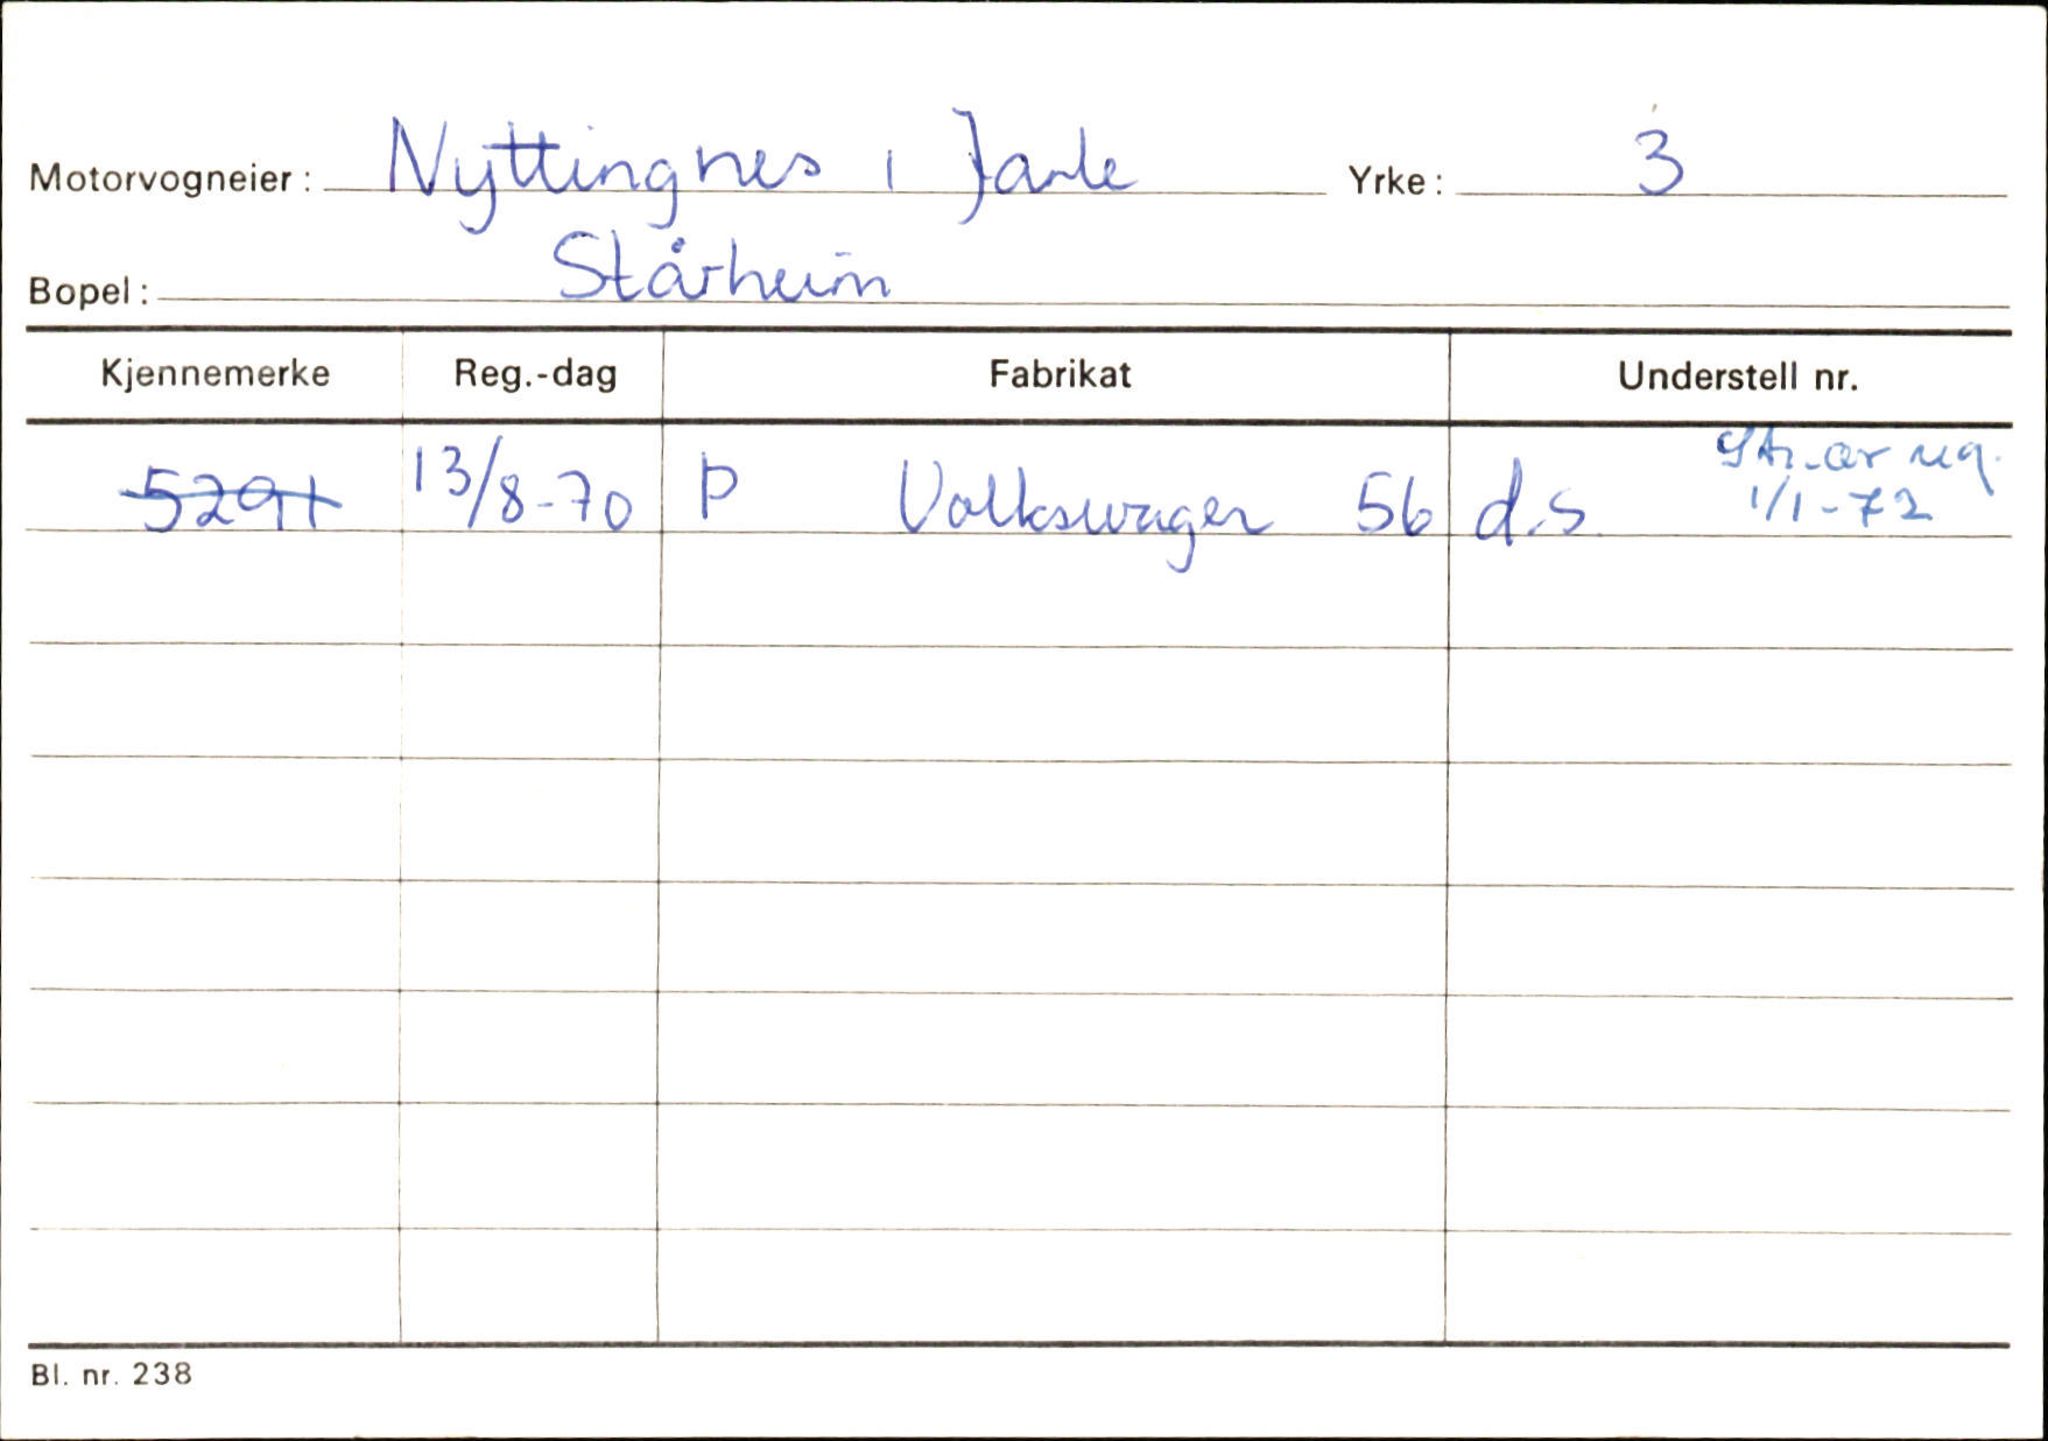 Motorvogneier: Nyttingnes, Jarle Yrke: 3
Bopel: Stårheim
Kjennemerke Reg.-dag Fabrikat Understell nr.
Str. av reg.
5291 13/8-70 P Volkswagen 56 d.s. 1/1-72
Bl. nr. 238